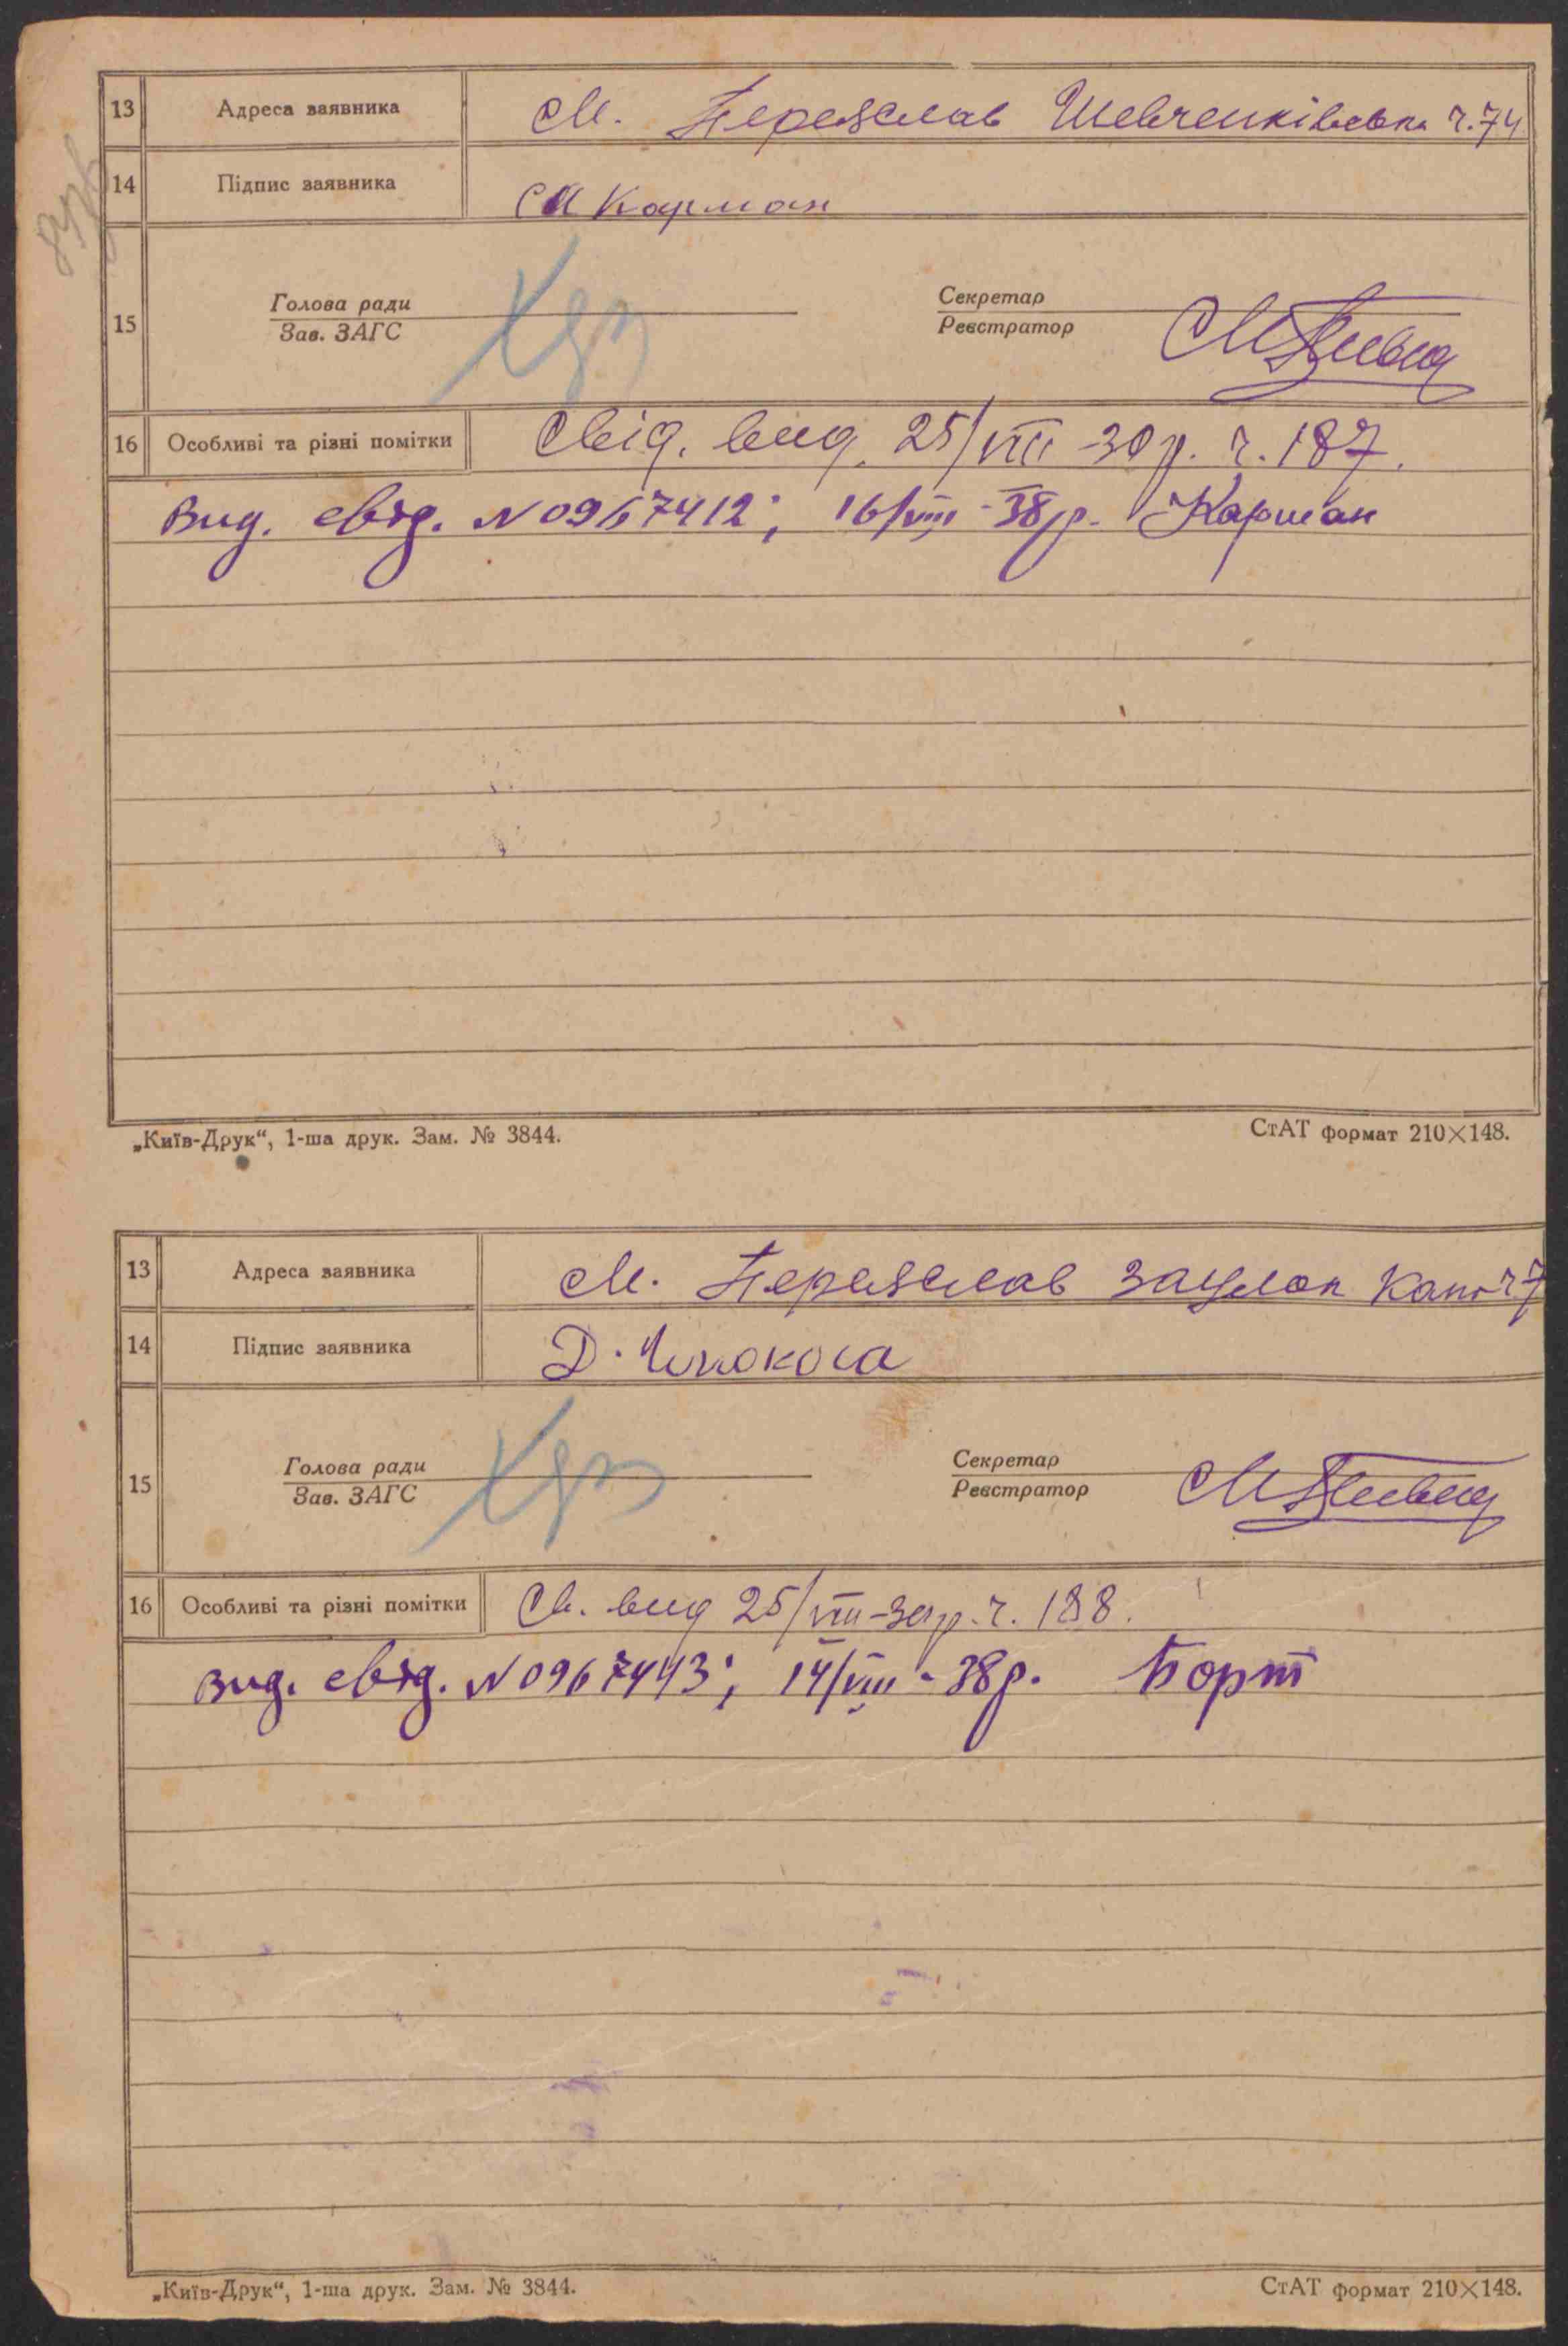 13 Адреса заявника м. Переяслав Шевченківська ч. 74
14 Підпис заявника М Карман
15 Голова ради Секретар
Зав. ЗАГС Реєстратор
16 Особливі та різні помітки Свід. вид. 25/VIII -30 р. ч. 187.
Вид. свід. N 0967412; 16/VIII - 38 р. Карман
„Київ-Друк“, 1-ша друк. Зам. № 3844. СтАТ формат 210×148.
13 Адреса заявника м. Переяслав
14 Підпис заявника Д.
15 Голова ради Секретар
Зав. ЗАГС Реєстратор
16 Особливі та різні помітки Св. вид 25/VIII-30 р. ч. 188.
Вид. свід. N 0967443; 14/VIII - 38 р. Борт
„Київ-Друк“, 1-ша друк. Зам. № 3844. СтАТ формат 210×148.